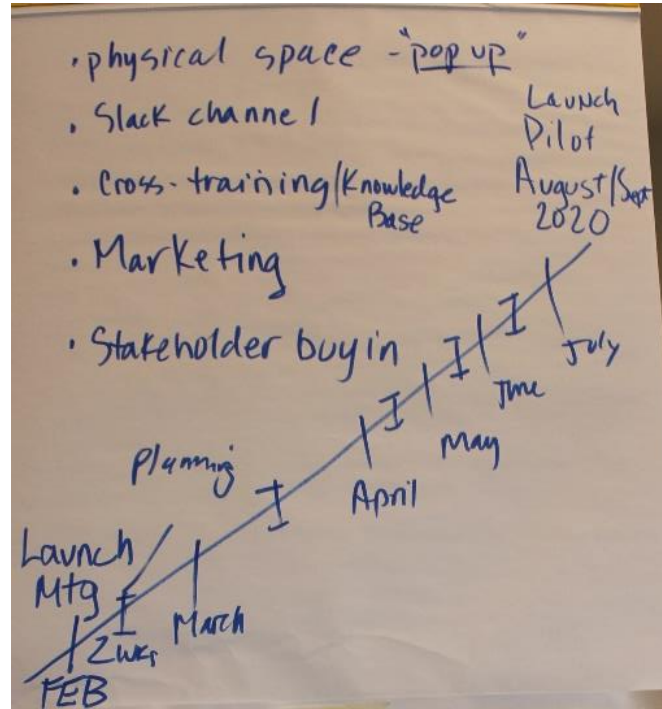 • physical space - "pop up"
• Slack channel
• Cross-training/Knowledge
Base
• Marketing
• Stakeholder buyin
Launch
Pilot
August/Sept
2020
July
June
May
April
Planning
March
Launch
Mtg
2wks
FEB